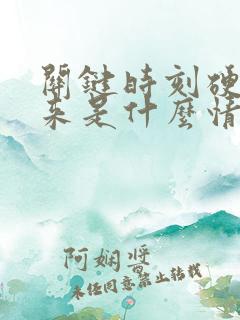 關鍵時刻硬
來是什麼情
阿娴醬
未经同意禁止转载